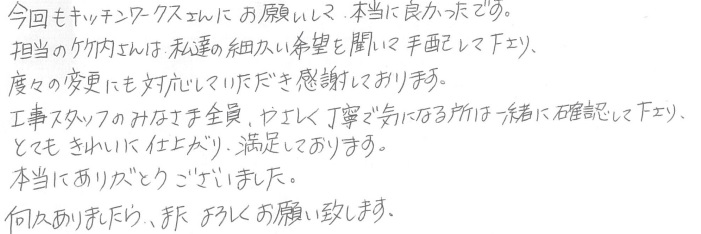 今回もキッチンワークスさんにお願いして、本当に良かったです。
担当の竹内さんは、私達の細かい希望を聞いて手配して下さり、
度々の変更にも対応していただき感謝しております。
工事スタッフのみなさま全員、やさしく丁寧で気になる所は一緒に確認して下さり、
とてもきれいに仕上がり、満足しております。
本当にありがとうございました。
何かありましたら、またよろしくお願い致します。